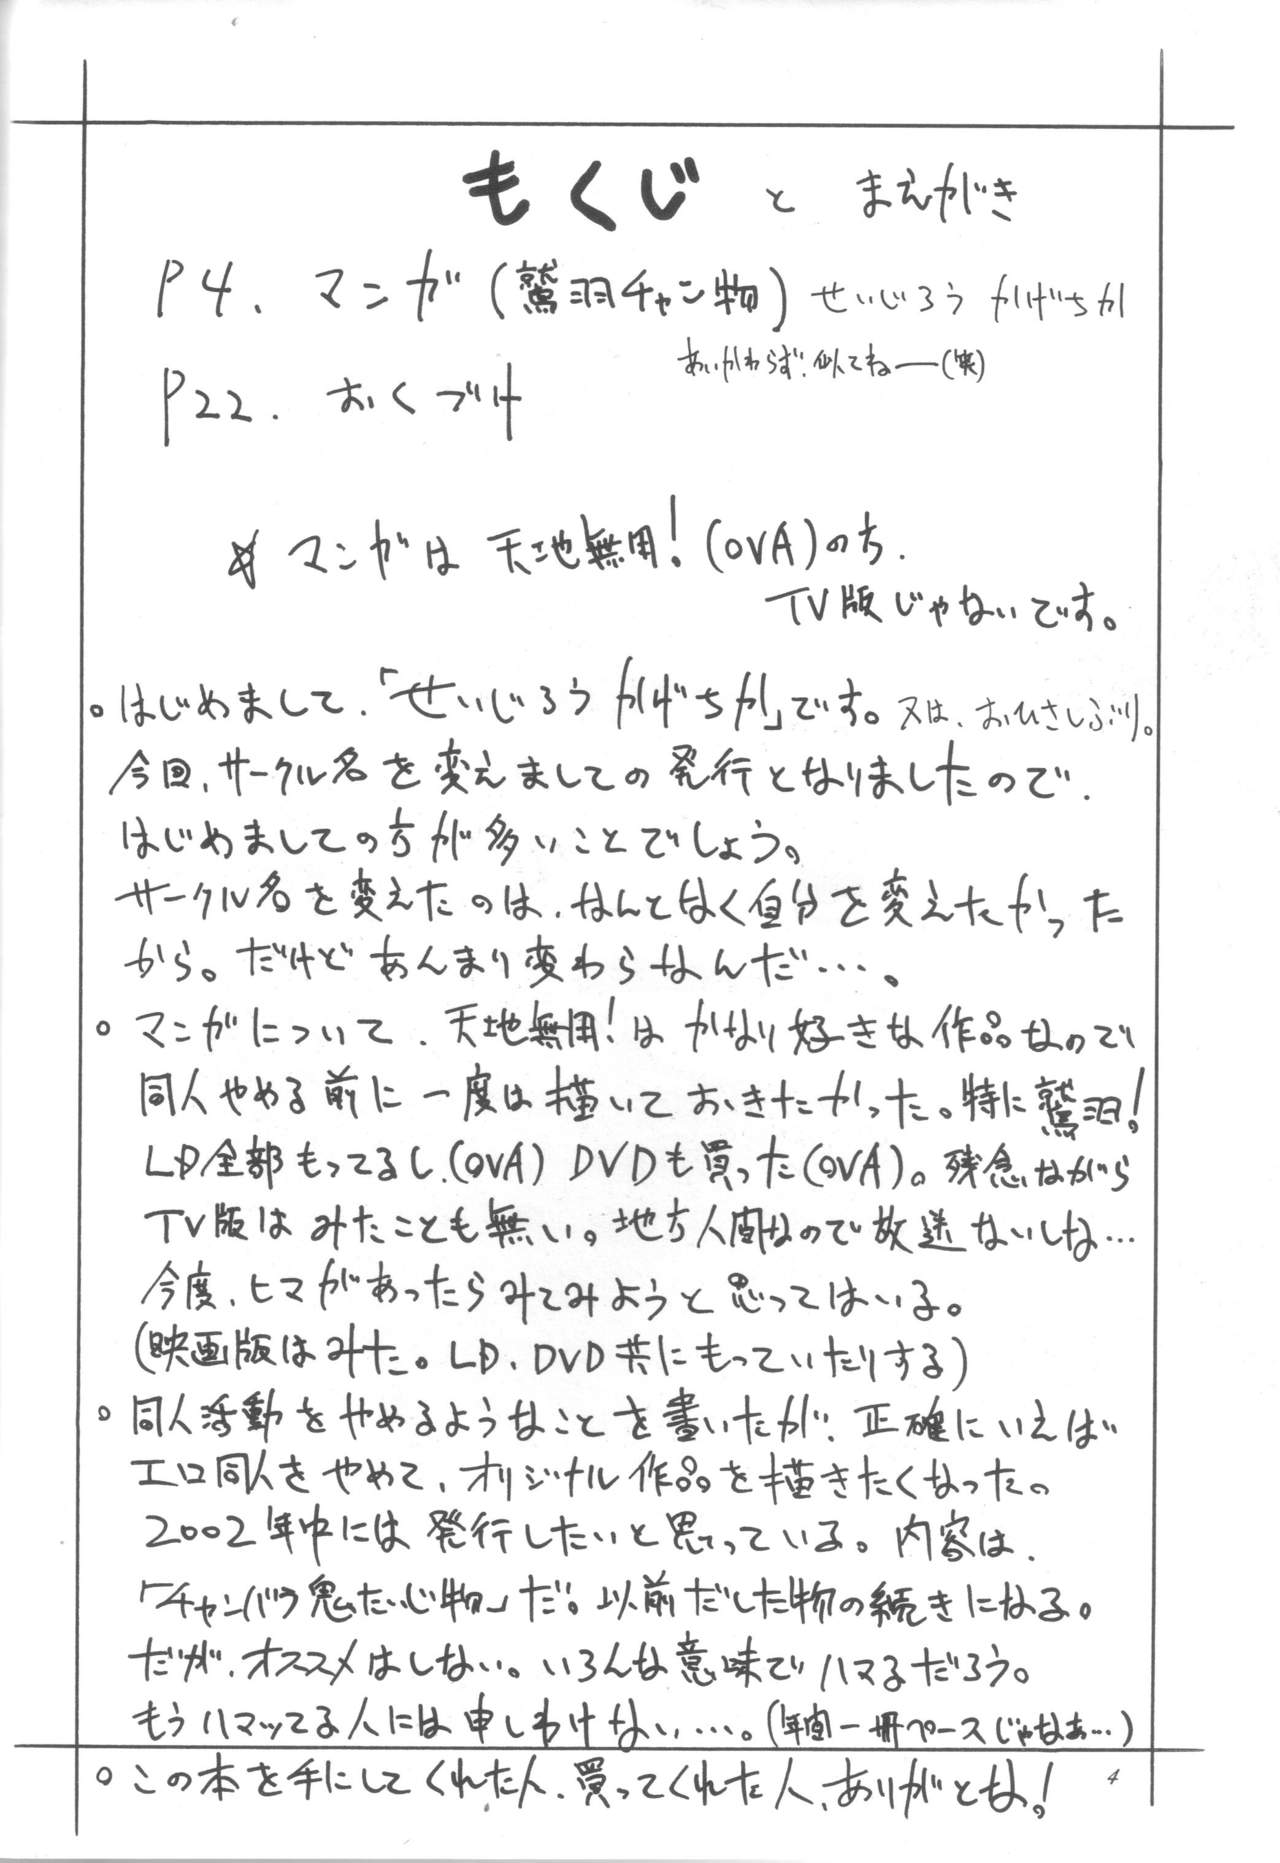 もくじ と まえがき
P4. マンガ(鷲羽チャン物) せいじろう かげちか
あいかわらず、似てねー(笑)
P22. おくづけ
☆ マンガは 天地無用!(OVA)の方.
TV版じゃないです。
○はじめまして、「せいじろう かげちか」です。又は、おひさしぶり。
今回、サークル名を変えましての発行となりましたので、
はじめましての方が多いことでしょう。
サークル名を変えたのは、なんとなく自分を変えたかった
から。だけどあんまり変わらなんだ…。
○マンガについて、天地無用!はかなり好きな作品なので
同人やめる前に一度は描いておきたかった。特に鷲羽!
LD全部もってるし、(OVA) DVDも買った(OVA)。残念ながら
TV版はみたことも無い。地方人間なので放送ないしな…
今度、ヒマがあったらみてみようと思ってはいる。
(映画版はみた。LD、DVD共にもっていたりする)
○同人活動をやめるようなことを書いたが、正確にいえば
エロ同人をやめて、オリジナル作品を描きたくなった。
2002年中には発行したいと思っている。内容は、
「チャンバラ鬼たいじ物」だ。以前だした物の続きになる。
だが、オススメはしない。いろんな意味でハマるだろう。
もうハマッてる人には申しわけない…。(年間一冊ペースじゃなぁ…)
○この本を手にしてくれた人、買ってくれた人、ありがとな!
4